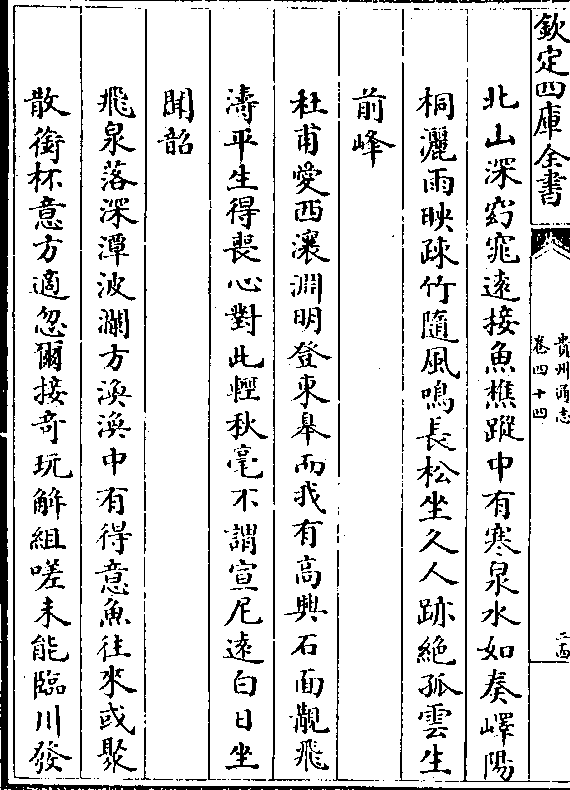 欽定四庫全書
貴州通志
卷四十四
二西
北山深窈窕遠接魚樵蹤中有寒泉水如奏嶧陽
桐灑雨映疎竹隨風鳴長松坐久人跡絶孤雲生
前峰
杜甫愛西瀼淵明登東皋而我有高興石面觀飛
濤平生得喪心對此輕秋毫不謂宣尼遠白日坐
聞韶
飛泉落深潭波瀾方渙渙中有得意魚往來或聚
散銜杯意方適忽爾接奇玩解組嗟未能臨川發